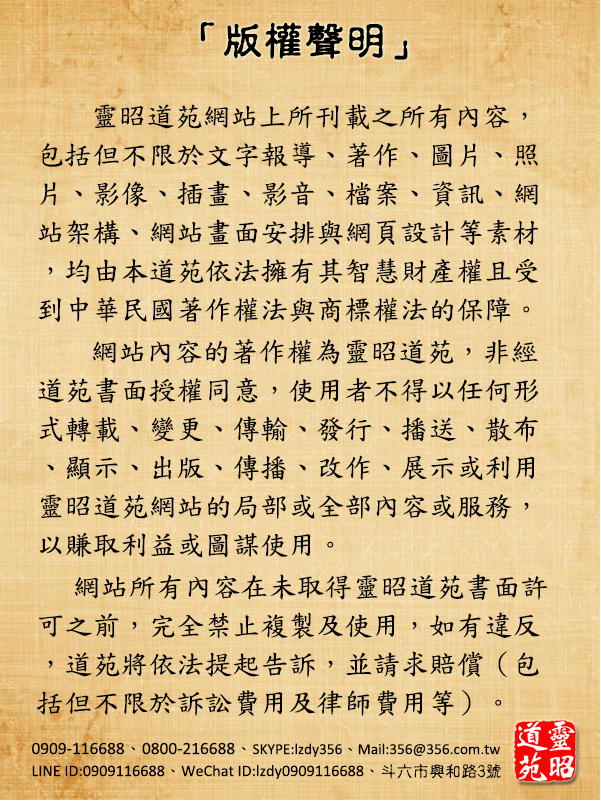 「版權聲明」
靈昭道苑網站上所刊載之所有內容，
包括但不限於文字報導、著作、圖片、照
片、影像、插畫、影音、檔案、資訊、網
站架構、網站畫面安排與網頁設計等素材
，均由本道苑依法擁有其智慧財產權且受
到中華民國著作權法與商標權法的保障。
網站內容的著作權為靈昭道苑，非經
道苑書面授權同意，使用者不得以任何形
式轉載、變更、傳輸、發行、播送、散布
、顯示、出版、傳播、改作、展示或利用
靈昭道苑網站的局部或全部內容或服務，
以賺取利益或圖謀使用。
網站所有內容在未取得靈昭道苑書面許
可之前，完全禁止複製及使用，如有違反
，道苑將依法提起告訴，並請求賠償（包
括但不限於訴訟費用及律師費用等）。
0909-116688、0800-216688、SKYPE:lzdy356、Mail:356@356.com.tw
LINE ID:0909116688、WeChat ID:lzdy0909116688、斗六市興和路3號
靈昭
道苑